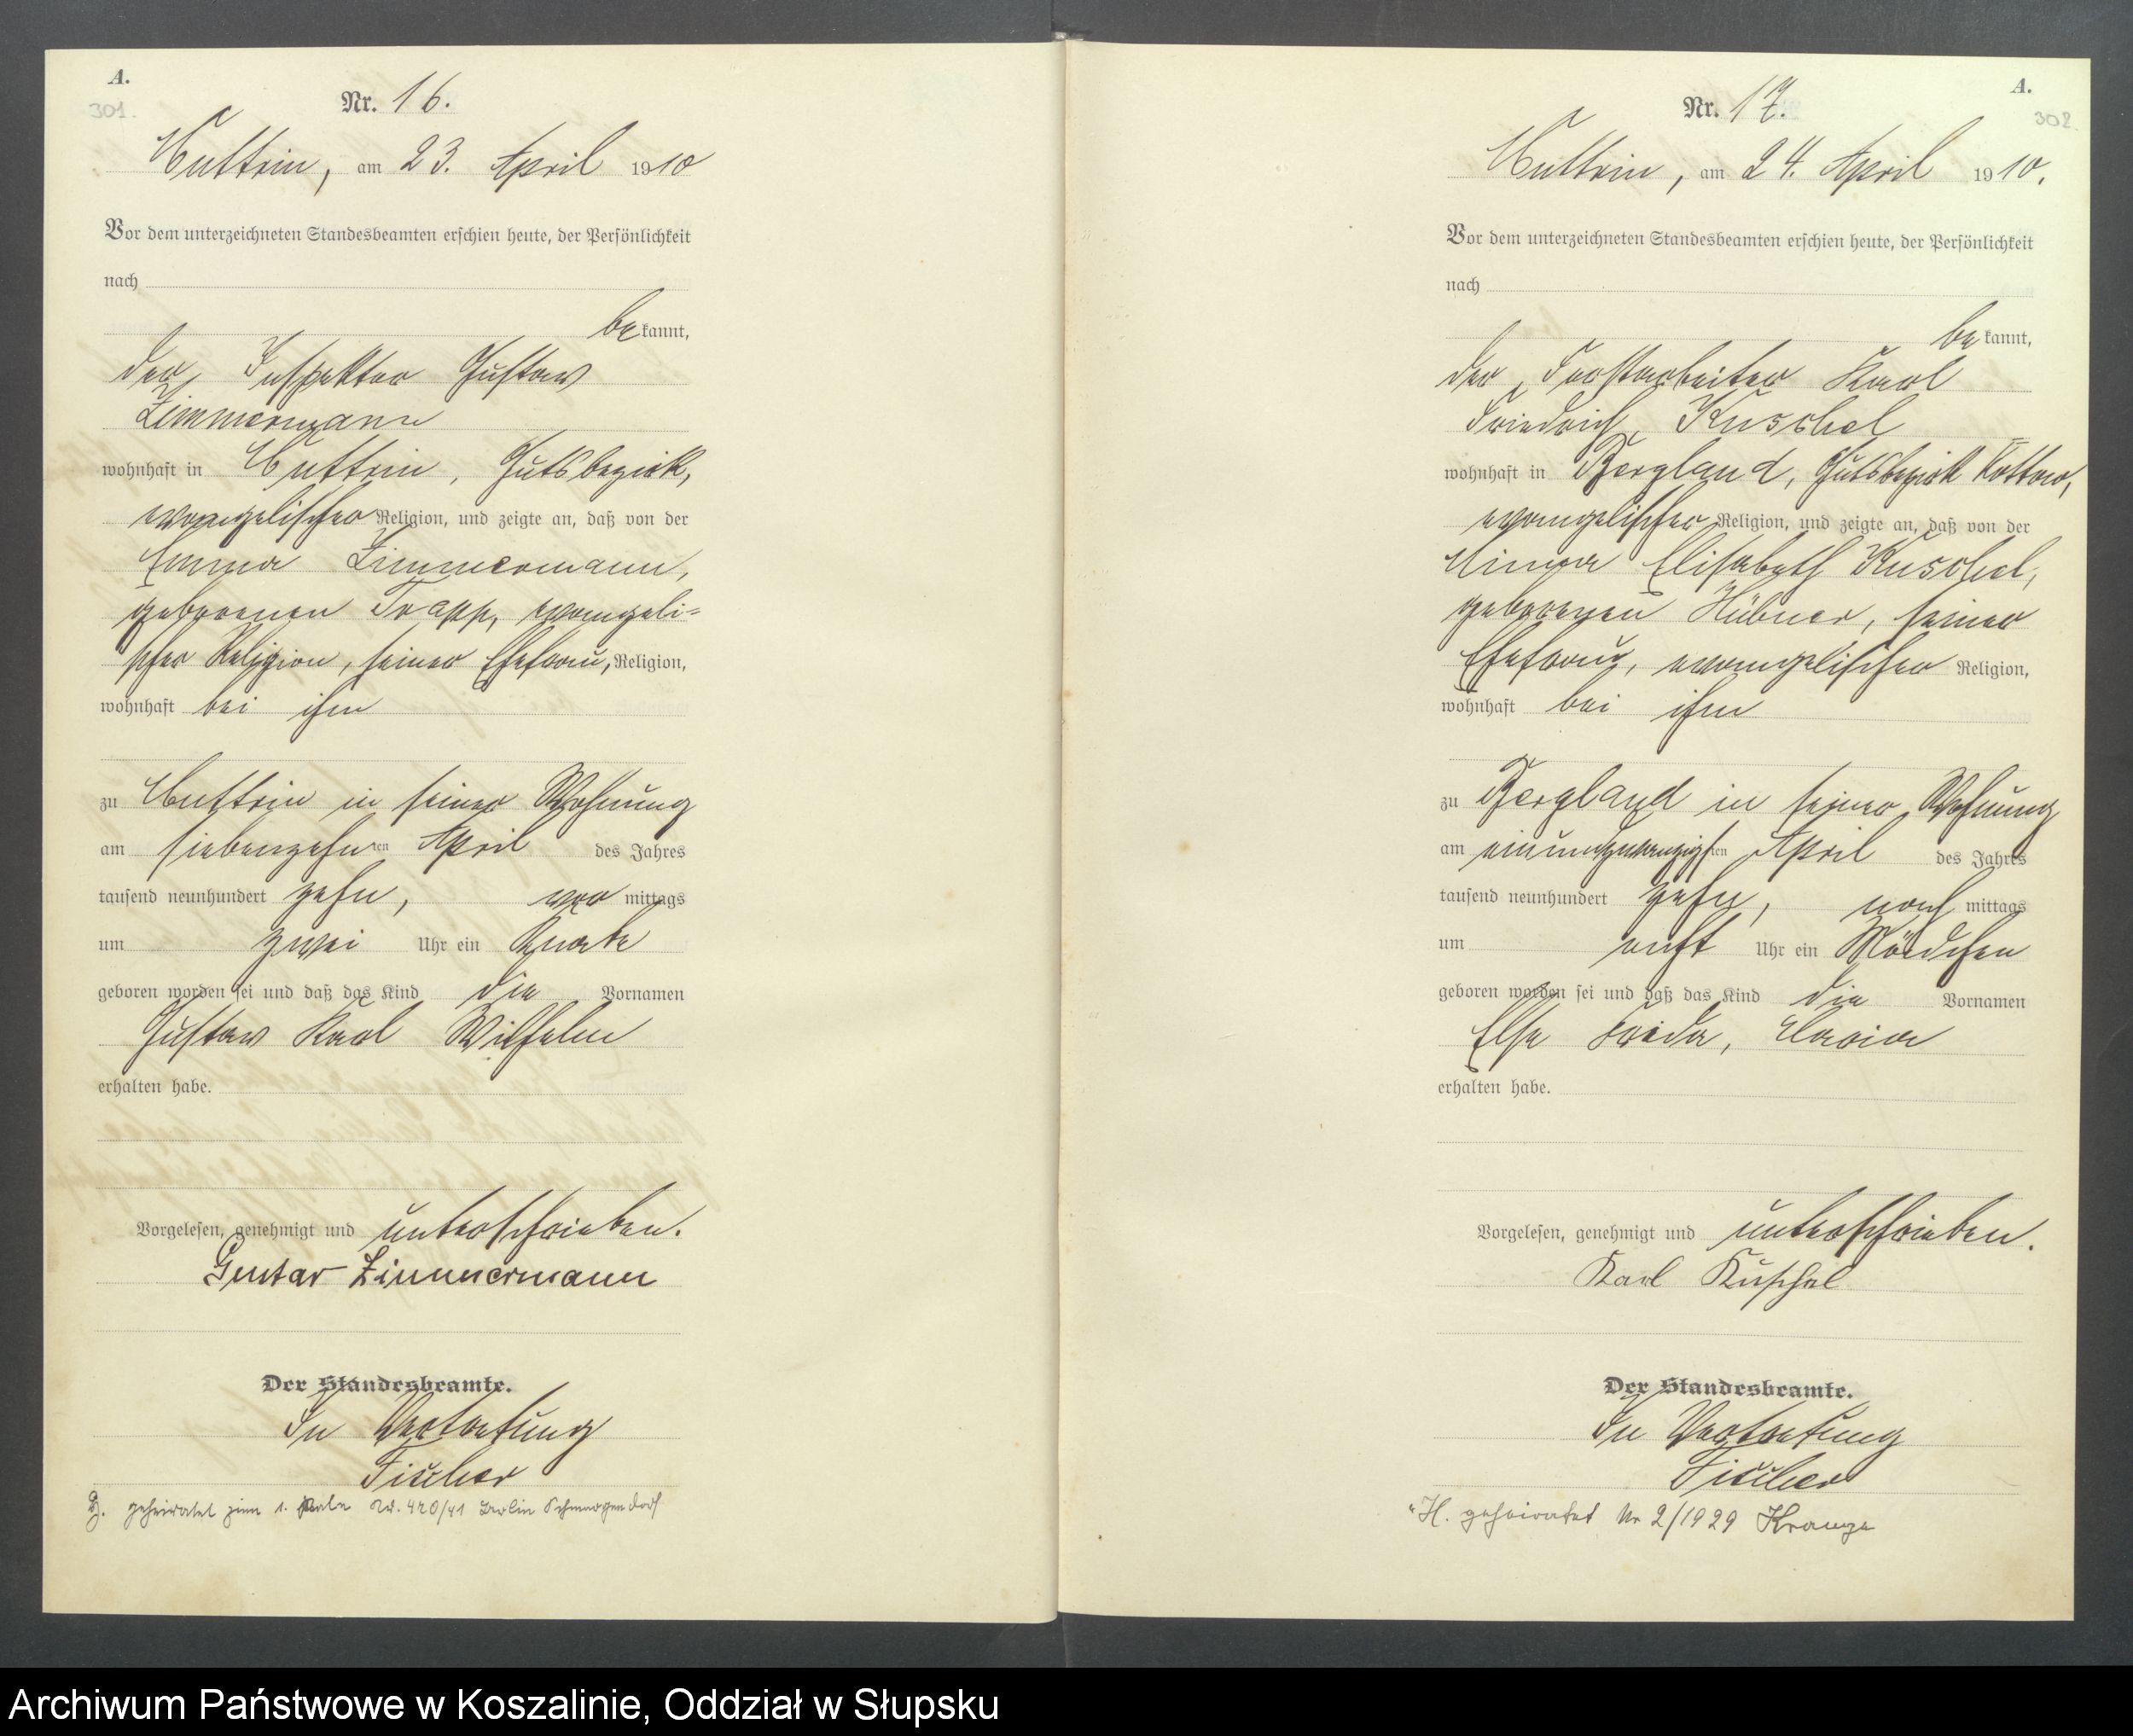 A.
301.
Nr. 16.
Muttrin, am 23. April 1910
Vor dem unterzeichneten Standesbeamten erschien heute, der Persönlichkeit
nach
bekannt,
der Inspektor Gustav
Zimmermann
wohnhaft in Muttrin, Gutsbezirk,
evangelischer Religion, und zeigte an, daß von der
Emma Zimmermann,
geborenen Trapp, evangeli-
scher Religion, seiner Ehefrau, Religion,
wohnhaft bei ihm
zu Muttrin in seiner Wohnung
am siebenzehnten April des Jahres
tausend neunhundert zehn, vor mittags
um zwei Uhr ein Knabe
geboren worden sei und daß das Kind die Vornamen
Gustav Karl Wilhelm
erhalten habe.
Vorgelesen, genehmigt und unterschrieben.
Gustav Zimmermann
Der Standesbeamte.
In Vertretung
Fischer
geheiratet zum 1. Male Nr. 420/41 Berlin Schmargendorf
A.
302
Nr. 17.
Muttrin, am 24. April 1910.
Vor dem unterzeichneten Standesbeamten erschien heute, der Persönlichkeit
nach
bekannt,
der Forstarbeiter Karl
Friedrich Kuschel
wohnhaft in Bergland, Gutsbezirk Kottow,
evangelischer Religion, und zeigte an, daß von der
Minna Elisabeth Kuschel,
geborenen Hübner, seiner
Ehefrau, evangelischer Religion,
wohnhaft bei ihm
zu Bergland in seiner Wohnung
am einundzwanzigsten April des Jahres
tausend neunhundert zehn, nach mittags
um acht Uhr ein Mädchen
geboren worden sei und daß das Kind die Vornamen
Else Frida, Maria
erhalten habe.
Vorgelesen, genehmigt und unterschrieben.
Karl Kuschel
Der Standesbeamte.
In Vertretung
Fischer
H. geheiratet Nr 2/1929 Krange
Archiwum Państwowe w Koszalinie, Oddział w Słupsku